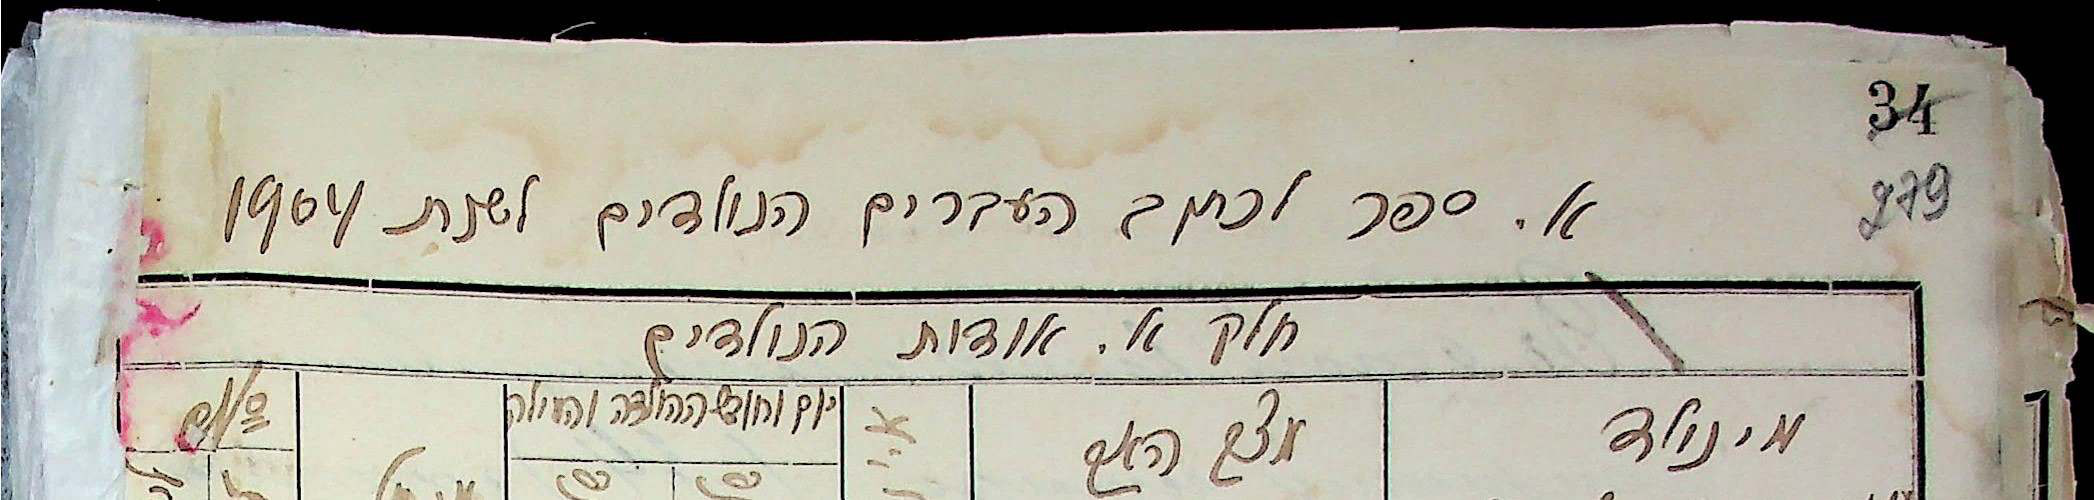 34
279
א. ספר לכתב העברים הנולדים לשנת 1904
חלק א. אודות הנולדים
מי נולד
מצב האב
יום וחודש ההולדה והמילה